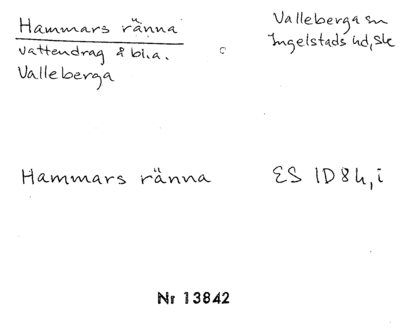 Hammars ränna
vattendrag å bl.a.
Valleberga
Valleberga sn
Ingelstads hd, Sk
Hammars ränna
ES 1D8h,i
Nr 13842